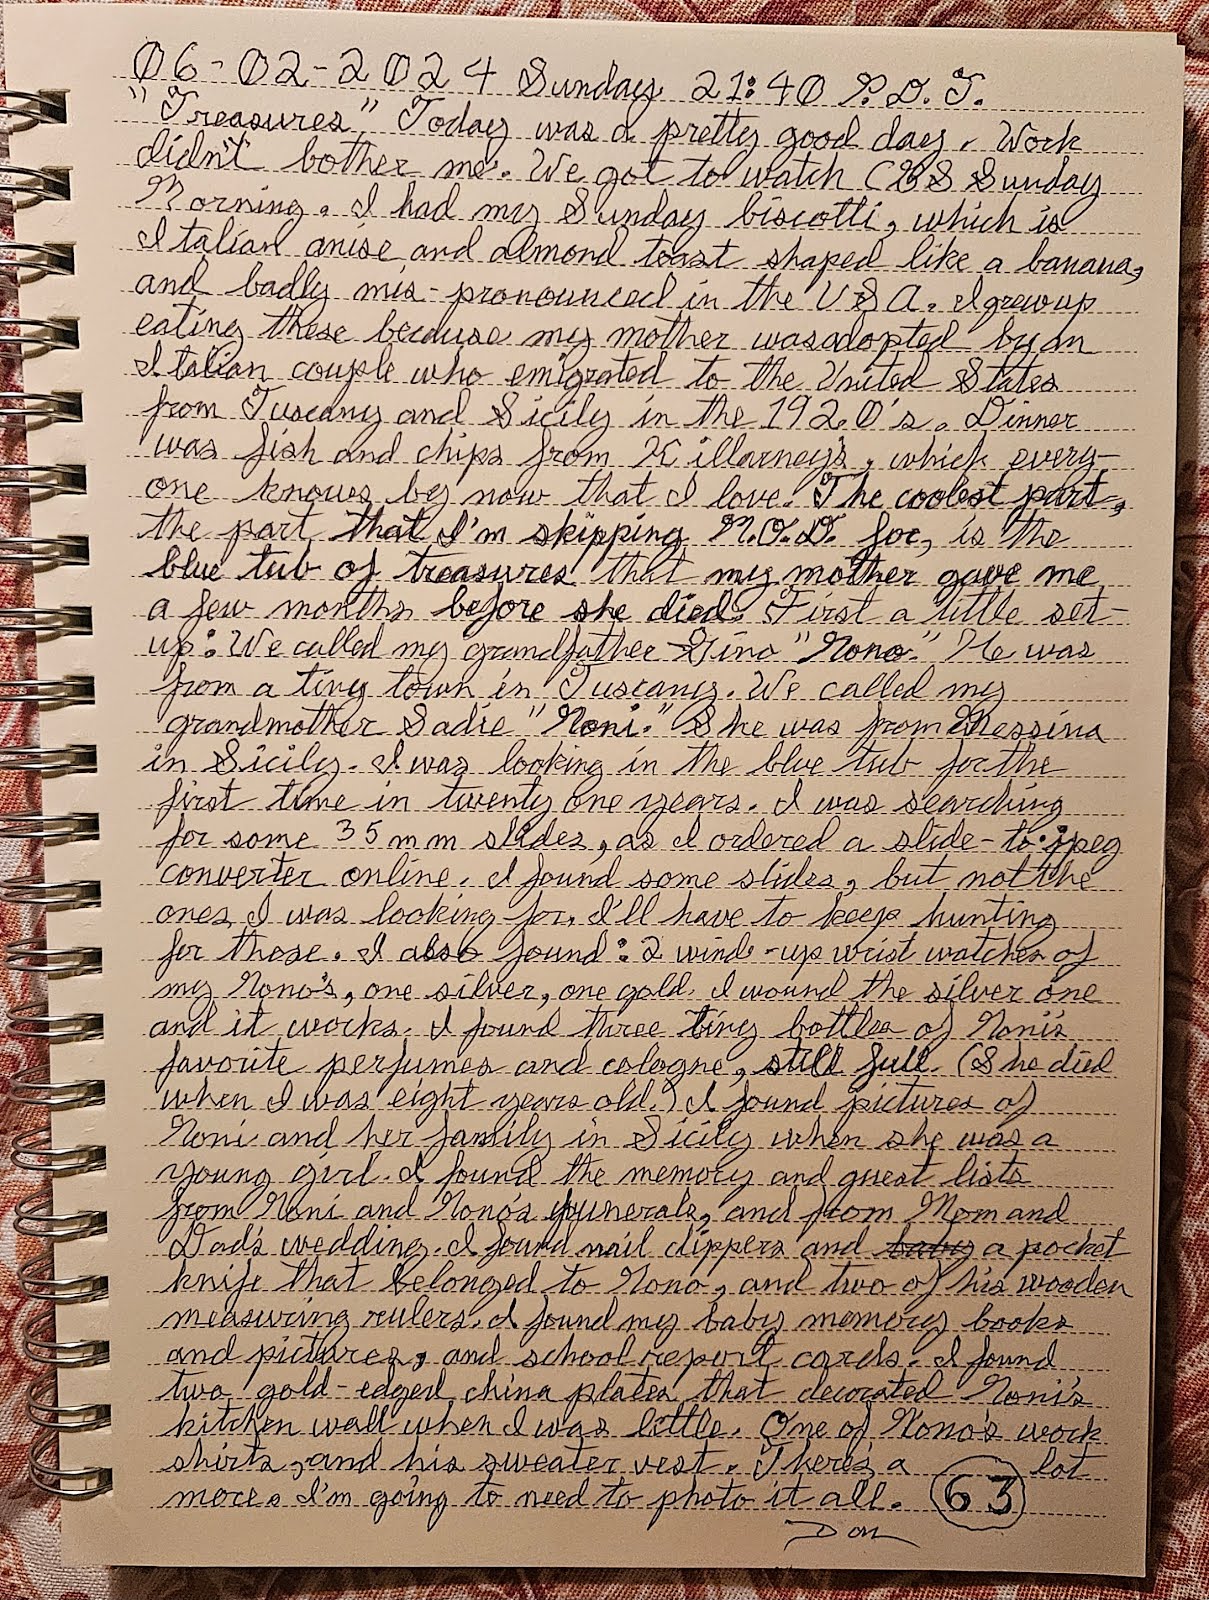 06-02-2024 Sunday 21:40 P.D.T.
"Treasures" Today was a pretty good day. Work
didn't bother me. We got to watch CBS Sunday
Morning. I had my Sunday biscotti, which is
Italian anise and almond toast shaped like a banana,
and badly mis-pronounced in the USA. I grew up
eating these because my mother was adopted by an
Italian couple who emigrated to the United States
from Tuscany and Sicily in the 1920's. Dinner
was fish and chips from Killarney's, which every-
one knows by now that I love. The coolest part,
the part that I'm skipping M.O.D. for, is the
blue tub of treasures that my mother gave me
a few months before she died. First a little set-
up: We called my grandfather Gino "Nono." He was
from a tiny town in Tuscany. We called my
grandmother Sadie "Noni." She was from Messina
in Sicily. I was looking in the blue tub for the
first time in twenty one years. I was searching
for some 35mm slides, as I ordered a slide-to-jpeg
converter online. I found some slides, but not the
ones I was looking for. I'll have to keep hunting
for those. I also found: 2 wind-up wrist watches of
my Nono's, one silver, one gold. I wound the silver one
and it works. I found three tiny bottles of Noni's
favorite perfumes and cologne, still full. (She died
when I was eight years old.) I found pictures of
Noni and her family in Sicily when she was a
young girl. I found the memory and guest lists
from Noni and Nono's funerals, and from Mom and
Dad's wedding. I found nail clippers and baby a pocket
knife that belonged to Nono, and two of his wooden
measuring rulers. I found my baby memory books
and pictures, and school report cards. I found
two gold-edged china plates that decorated Noni's
kitchen wall when I was little. One of Nono's work
shirts, and his sweater vest. There's a lot
more. I'm going to need to photo it all. 63
Don